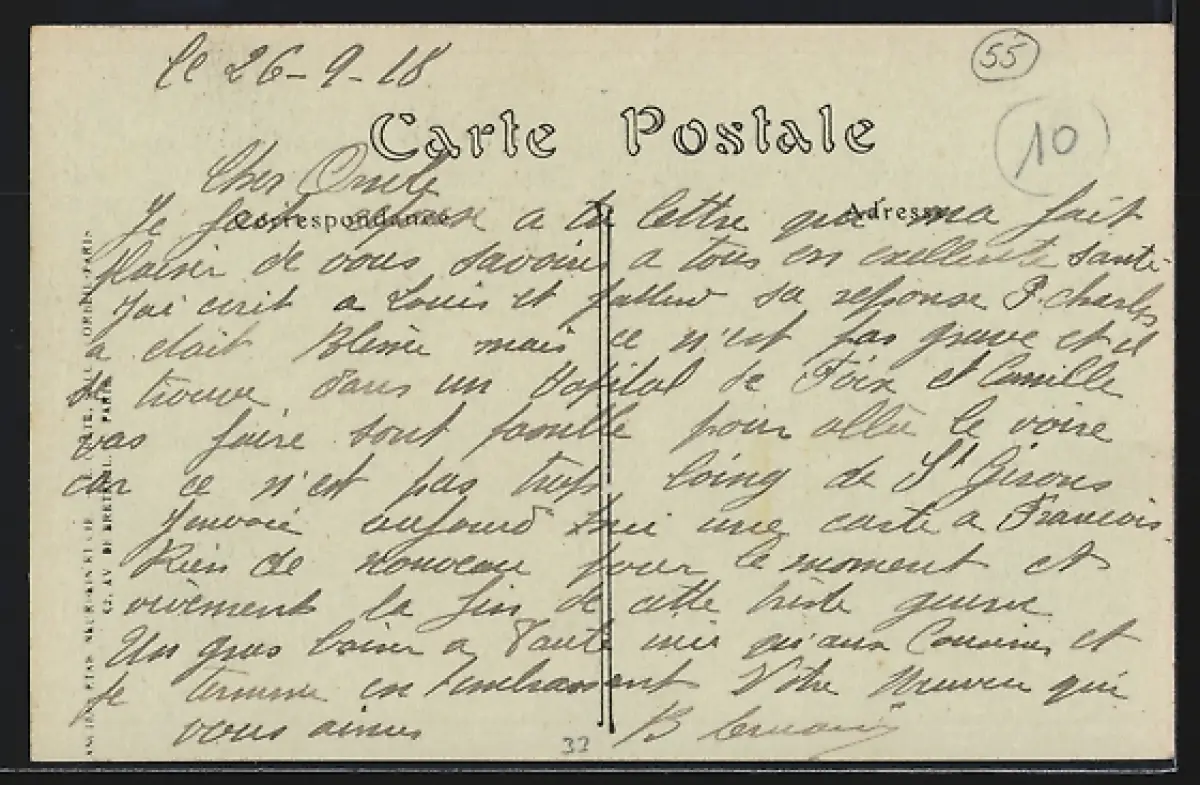 le 26-9-18
55
Carte Postale
10
Cher Oncle
Correspondance
Adresse
Je fait reponse a ta lettre qui ma fait
plaisir de vous savoirs a tous en exellente santé
Jai ecrit a Louis et sa reponse P. charles
a etait Blessé mais ce n'est pas grave et il
se trouve dans un Hopital de Foix et Camille
vas faire tout possible pour allé le voire
car ce n'est pas trop loing de St Girons
J'envoie aujourd hui une carte a Francois
Rien de nouveau pour le moment et
vivement la fin de cette triste guerre
Un gros baiser a Tante qu'aux Cousins et
je termine en t'embrassant Votre Neuveu qui
vous aimes B
33